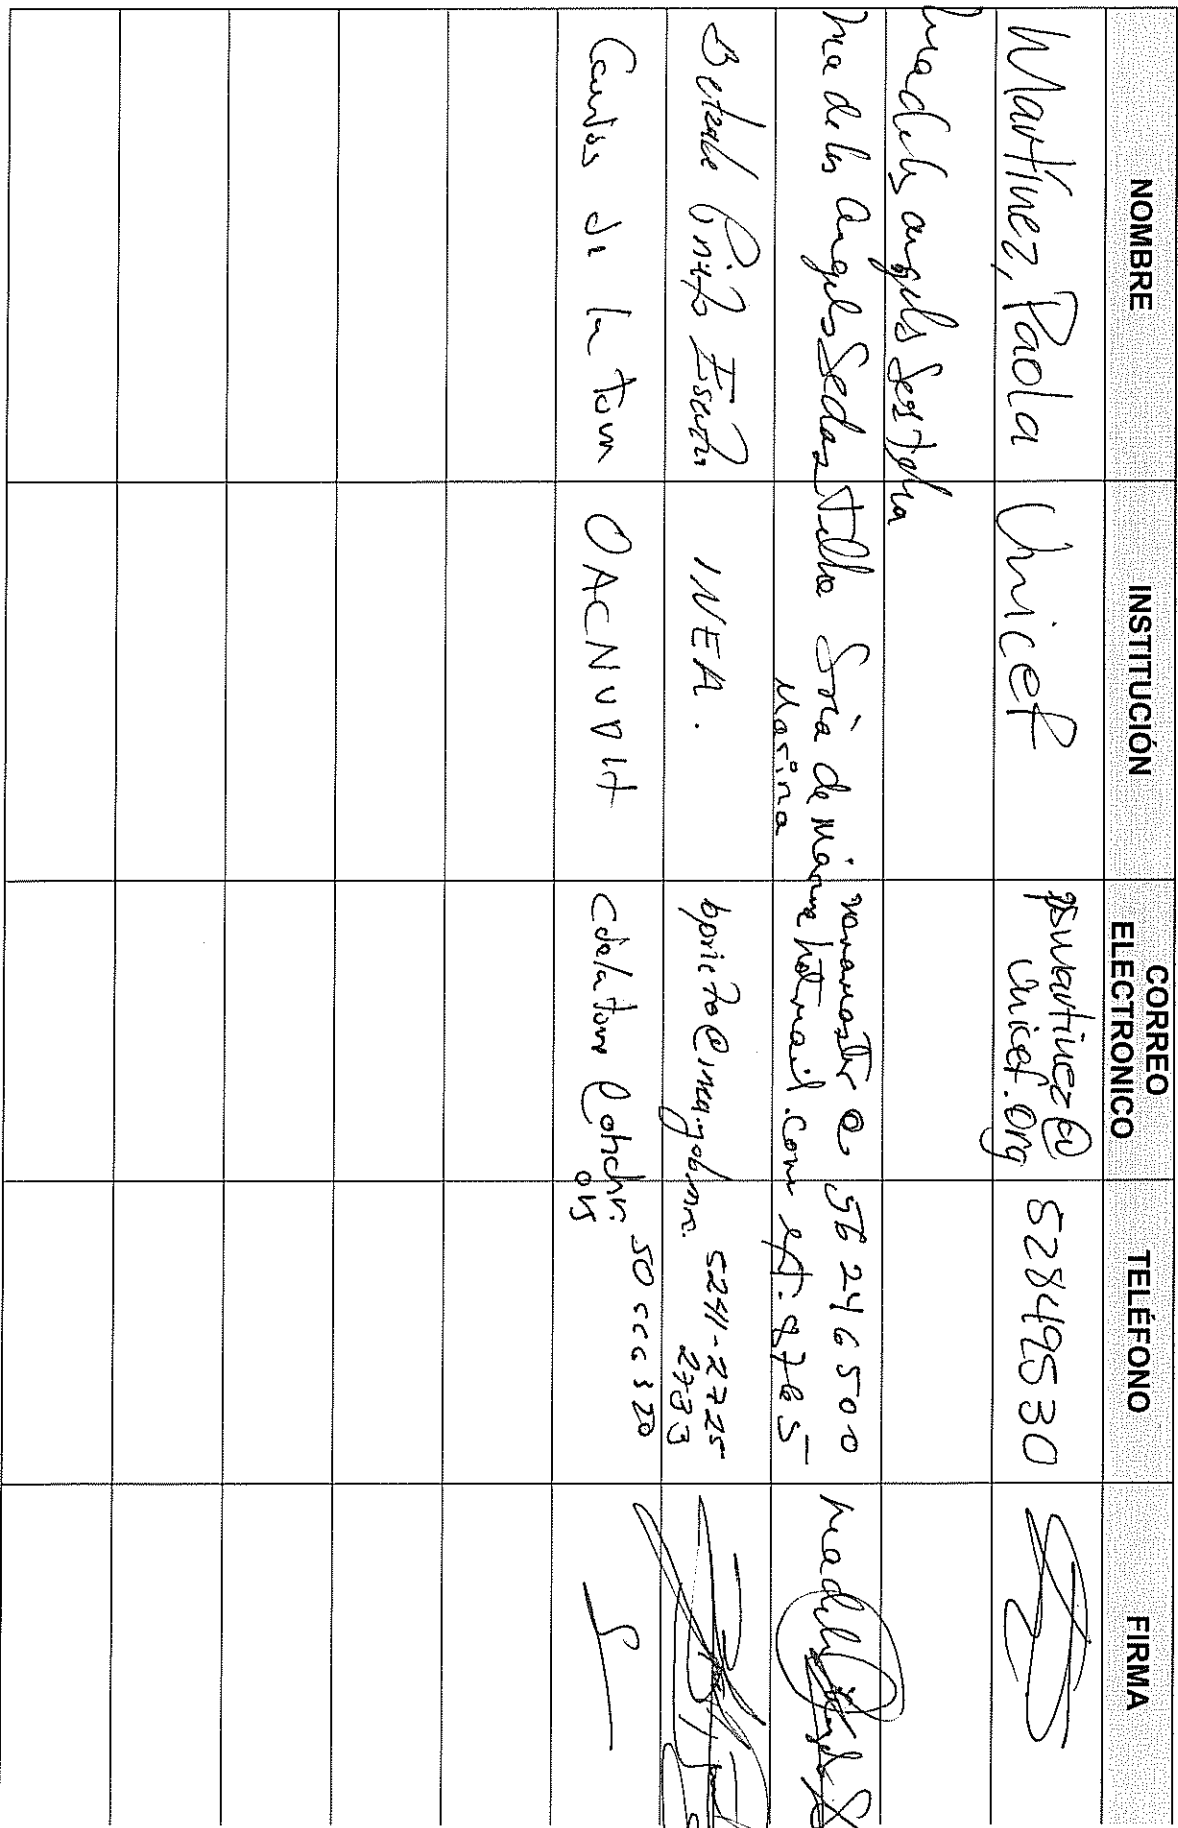 NOMBRE
INSTITUCIÓN
CORREO
ELECTRONICO
TELÉFONO
FIRMA
Martínez, Paola
Unicef
psmartinez@
unicef.org
52849530
Ma de los angeles Sedas
Ma de los Angeles Sedas Tello
Sria de Marina
Marina
hotmail.com
56 24 65 00
ext. 8765
Prieto
INEA.
bprieto@inea.gob.mx.
5241-2725
2733
Carlos de la Torre
OACNUDH
cdelatorre@ohchr.
org